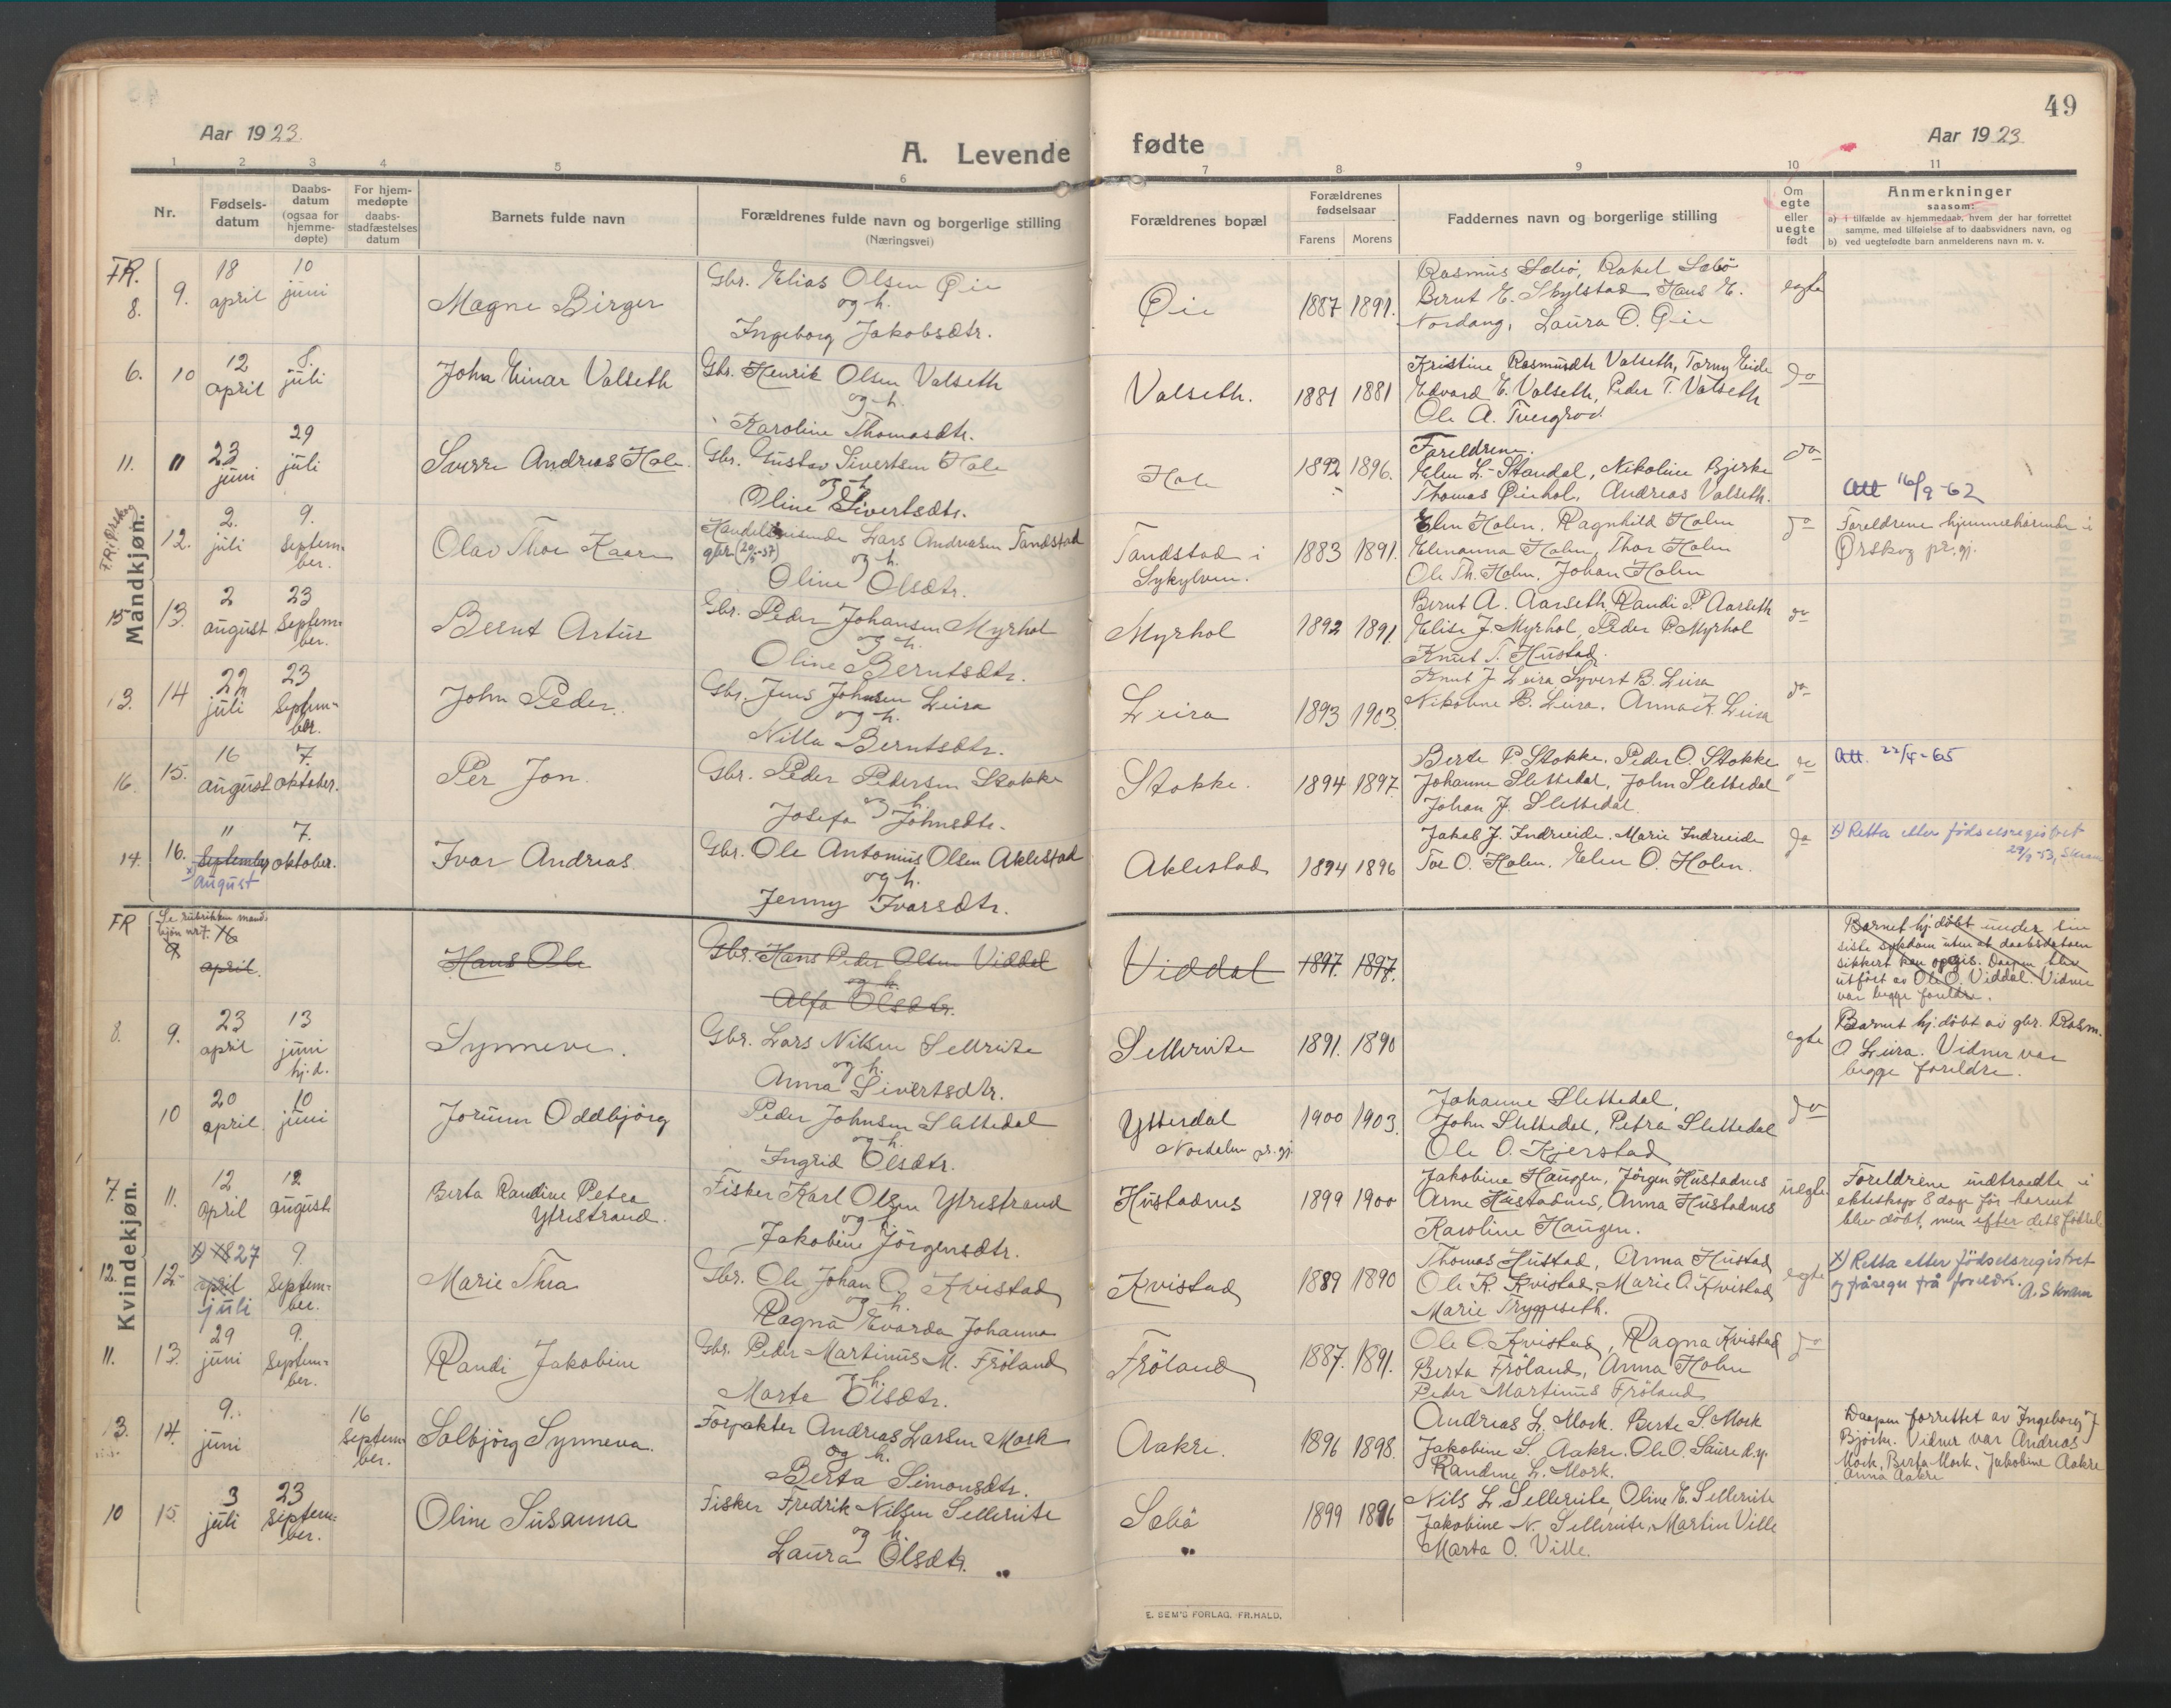 49
Aar 1923.
A. Levende
fødte
Aar 1923
1 2 3 4 5 6 7 8 9 10 11
Nr.
Fødsels-
datum
Daabs-
datum
(ogsaa for
hjemme-
døpte)
For hjem-
medøpte
daabs-
stadfæstelses
datum
Barnets fulde navn
Forældrenes fulde navn og borgerlige stilling
(Næringsvei)
Forældrenes bopæl
Forældrenes
fødselsaar
Farens Morens
Faddernes navn og borgerlige stilling
Om
egte
eller
uegte
født
Anmerkninger
saasom:
a) i tilfælde av hjemmedaab, hvem der har forrettet
samme, med tilføielse af to daabsvidners navn, og
b) ved uegtefødte barn anmelderens navn m. v.
Mandkjøn.
FR.
8. 9. 18 april 10 juni
Magne Birger
Gbr. Elias Olsen Øie
og h.
Ingeborg Jakobsdtr.
Øie 1887 1891.
Rasmus Sæbö, Rakel Sæbö
Bernt E. Skylstad, Hans E.
Nordang, Laura O. Øie
egte
6. 10 12 april 8. juli
John Einar Valseth
Gbr. Henrik Olsen Valseth
og h.
Karoline Thomasdtr.
Valseth. 1881 1881
Kristine Rasmusdtr Valseth, Torny Eide
Edvard E. Valseth, Peder T. Valseth
Ole A. Tvergrov.
do
11. 11 23 juni 29 juli
Sverre Andreas Hole.
Gbr. Gustav Sivertsen Hole
og h.
Oline Sivertsdtr.
Hole 1892 1896.
Foreldrene.
Elen L. Standal, Nikoline Bjerke
Thomas Øiehol, Andreas Valseth.
do
Att 16/9-62
FR i Ørskog
12. 2. juli 9. Septem-
ber.
Olav Thor Kaare
Handelsreisende Lars Andreasen Tandstad
gbr
og h.
Oline Olsdtr.
Tandstad i
Sykylven.
1883 1891.
Elen Holen. Ragnhild Holen
Elenanna Holen, Thor Holen
Ole Th. Holen. Johan Holen
do
Foreldrene hjemmehørende i
Ørskog pr.gj.
15 13. 2 august 23 Septem-
ber.
Bernt Artur
Gbr. Peder Johansen Myrhol
og h.
Oline Berntsdtr.
Myrhol 1892 1891.
Bernt A. Aarseth, Randi P Aarseth
Elise J. Myrhol, Peder P. Myrhol
Knut T. Hustad.
do
13. 14 22 juli 23 Septem-
ber.
John Peder.
Gbr. Jens Johnsen Leira
og h.
Nilla Berntsdtr.
Leira 1893 1903.
Knut J Leira Syvert B. Leira
Nikoline B. Leira. Anna K. Leira
do
16. 15. 16 august 7. oktober.
Per Jon.
Gbr. Peder Pedersen Stokke
og h.
Josefa Johnsdtr.
Stokke. 1894 1897.
Berte P Stokke. Peder O. Stokke
Johanne Slettedal, John Slettedal
Johan J. Slettedal
do
Att. 22/4-65
14. 16. " September x) august 7. oktober.
Ivar Andreas.
Gbr. Ole Antonius Olsen Aklestad
og h.
Jenny Ivarsdtr.
Aklestad 1894 1896
Jakob J. Indreeide. Marie Indreeide
Tore O. Holen. Elen O. Holen.
do
x) Retta etter fødselsregistret
29/9-53, Skram
Kvindekjøn.
FR
Se rubrikken mand-
kjøn nr 7.
9 16 april.
Hans Ole
Gbr. Hans Peder Olsen Viddal
og h.
Alfa Olsdtr.
Viddal 1897. 1897.
Barnet hj.døbt under sin
siste sykdom uten at daabsdatoen
sikkert kan opgis. Daapen blev
utført av Ole O. Viddal. Vidner
var begge foreldre.
8. 9. 23 april 13 juni
hj.d.
Synneve.
Gbr. Lars Nilsen Sellereite
og h.
Anna Sivertsdtr.
Sellereite 1891. 1890
egte
Barnet hj.døbt av gbr. Rasm.
O Leira. Vidner var
begge foreldre.
10 20 april 10 juni
Jorunn Oddbjörg
Peder Johnsen Slettedal
og h.
Ingrid Olsdtr.
Ytterdal
Nordalen pr.gj.
1900 1903.
Johanne Slettedal,
John Slettedal, Petra Slettedal
Ole O. Kjerstad
do
7. 11. 12 april 12 august
Berta Randine Petra
Ytrestrand.
Fisker Karl Olsen Ytrestrand
og h.
Jakobine Jörgensdtr.
Hustadnes 1899 1900
Jakobine Haugen, Jörgen Hustadnes
Arne Hustadnes, Anna Hustadnes
Karoline Haugen.
uegte
Foreldrene indtraadte i
ekteskap 8 dage før barnet
blev døbt, men efter dets fødsel
12. 12. x) 18 27 april juli 9. Septem-
ber.
Marie Thea
Gbr. Ole Johan O. Kvistad
og h.
Ragna Evarda Johanna
Kvistad 1889 1890
Thomas Hustad, Anna Hustad
Ole K. Kvistad, Marie A. Kvistad
Marie Tryggeseth.
egte
x) Retta etter fødselsregistret
og fråsegn frå foreldri.
A. Skram
11. 13. 29 juni 9. Septem-
ber.
Randi Jakobine
Gbr. Peder Martinus M. Fröland
og h.
Marte Olsdtr.
Fröland 1887. 1891.
Ole O. Kvistad, Ragna Kvistad
Berta Fröland, Anna Holen
Peder Martinus Fröland
do
13. 14. 9. juni 16 Septem-
ber.
Solbjörg Synneva.
Forpakter Andreas Larsen Mork
og h.
Berta Simonsdtr.
Aakre. 1896 1898.
Andreas L. Mork. Berte S. Mork
Jakobine S. Aakre. Ole O. Saure d.y.
Randine L. Mork.
Daapen forrettet av Ingeborg J
Björke. Vidner var Andreas
Mork, Berta Mork, Jakobine Aakre
Anna Aakre
10 15. 3 juli 23 Septem-
ber.
Oline Susanna
Fisker Fredrik Nilsen Sellereite
og h.
Laura Olsdtr.
Sæbö 1899 1896
Nils L Sellereite, Oline E. Sellereite
Jakobine N. Sellereite, Martin Ville
Marta O. Ville.
E. SEM'S FORLAG, FR.HALD.